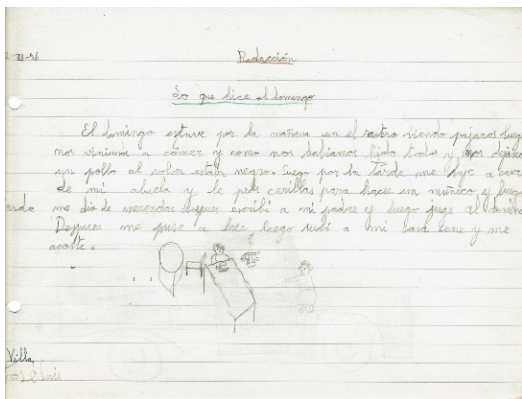 Redacción
Lo que hice el domingo
El domingo estuve por la mañana en el rastro viendo pájaros luego
nos vinimos a comer y como nos habiamos hido todos y nos dejamos
un pollo al volver estava negro. Luego por la tarde me fuye a casa
de mi abuela y le pedi cerillas para hacer un muñeco y luego
me dio de merendar despues escribi a mi padre y luego juge al domino
Despues me puse a leer luego subi a mi casa cene y me
acoste.
Villa